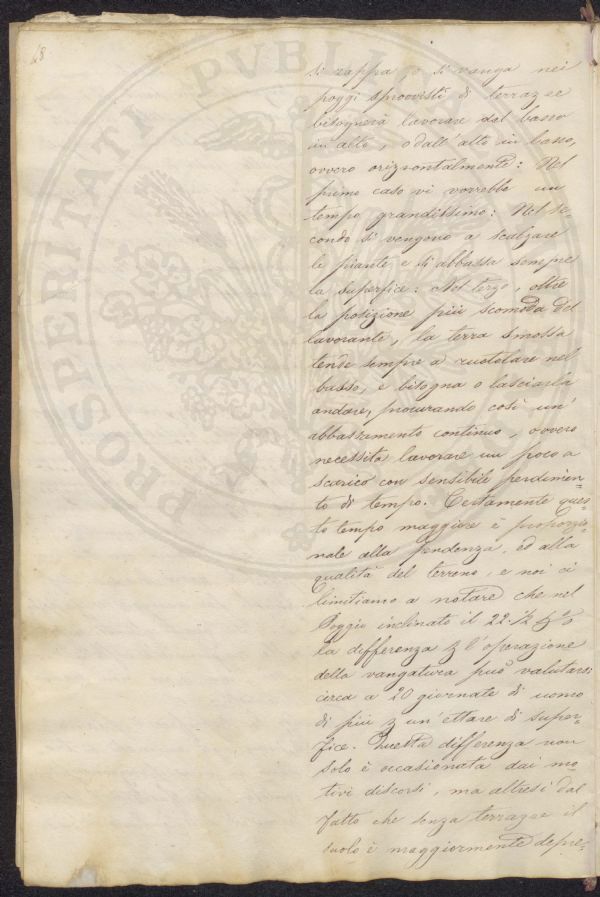 48
si zappa o si vanga nei
poggi sprovvisti di terrazze
bisognerà lavorare dal basso
in alto, o dall'alto in basso,
ovvero orizzontalmente: Nel
primo caso vi vorrebbe un
tempo grandissimo: Nel se-
condo si vengono a scalzare
le piante e si abbassa sempre
la superfice: Nel terzo, oltre
la posizione più scomoda del
lavorante, la terra smossa
tende sempre a ruotolare nel
basso, e bisogna o lasciarla
andare, procurando così un'
abbassamento continuo, ovvero
necessita lavorare un poco a
scarico con sensibile perdimen-
to di tempo. Certamente ques-
to tempo maggiore è proporzio-
nale alla pendenza, ed alla
qualità del terreno, e noi ci
limitiamo a notare che nel
Poggio inclinato il 22 ½ p %
la differenza p l'operazione
della vangatura può valutarsi
circa a 20 giornate di uomo
di più p un'ettare di super-
fice. Questa differenza non
solo è occasionata dai mo-
tivi discorsi, ma altresì dal
fatto che senza terrazze il
suolo è maggiormente depre-
PROSPERITATI PVBLICAE